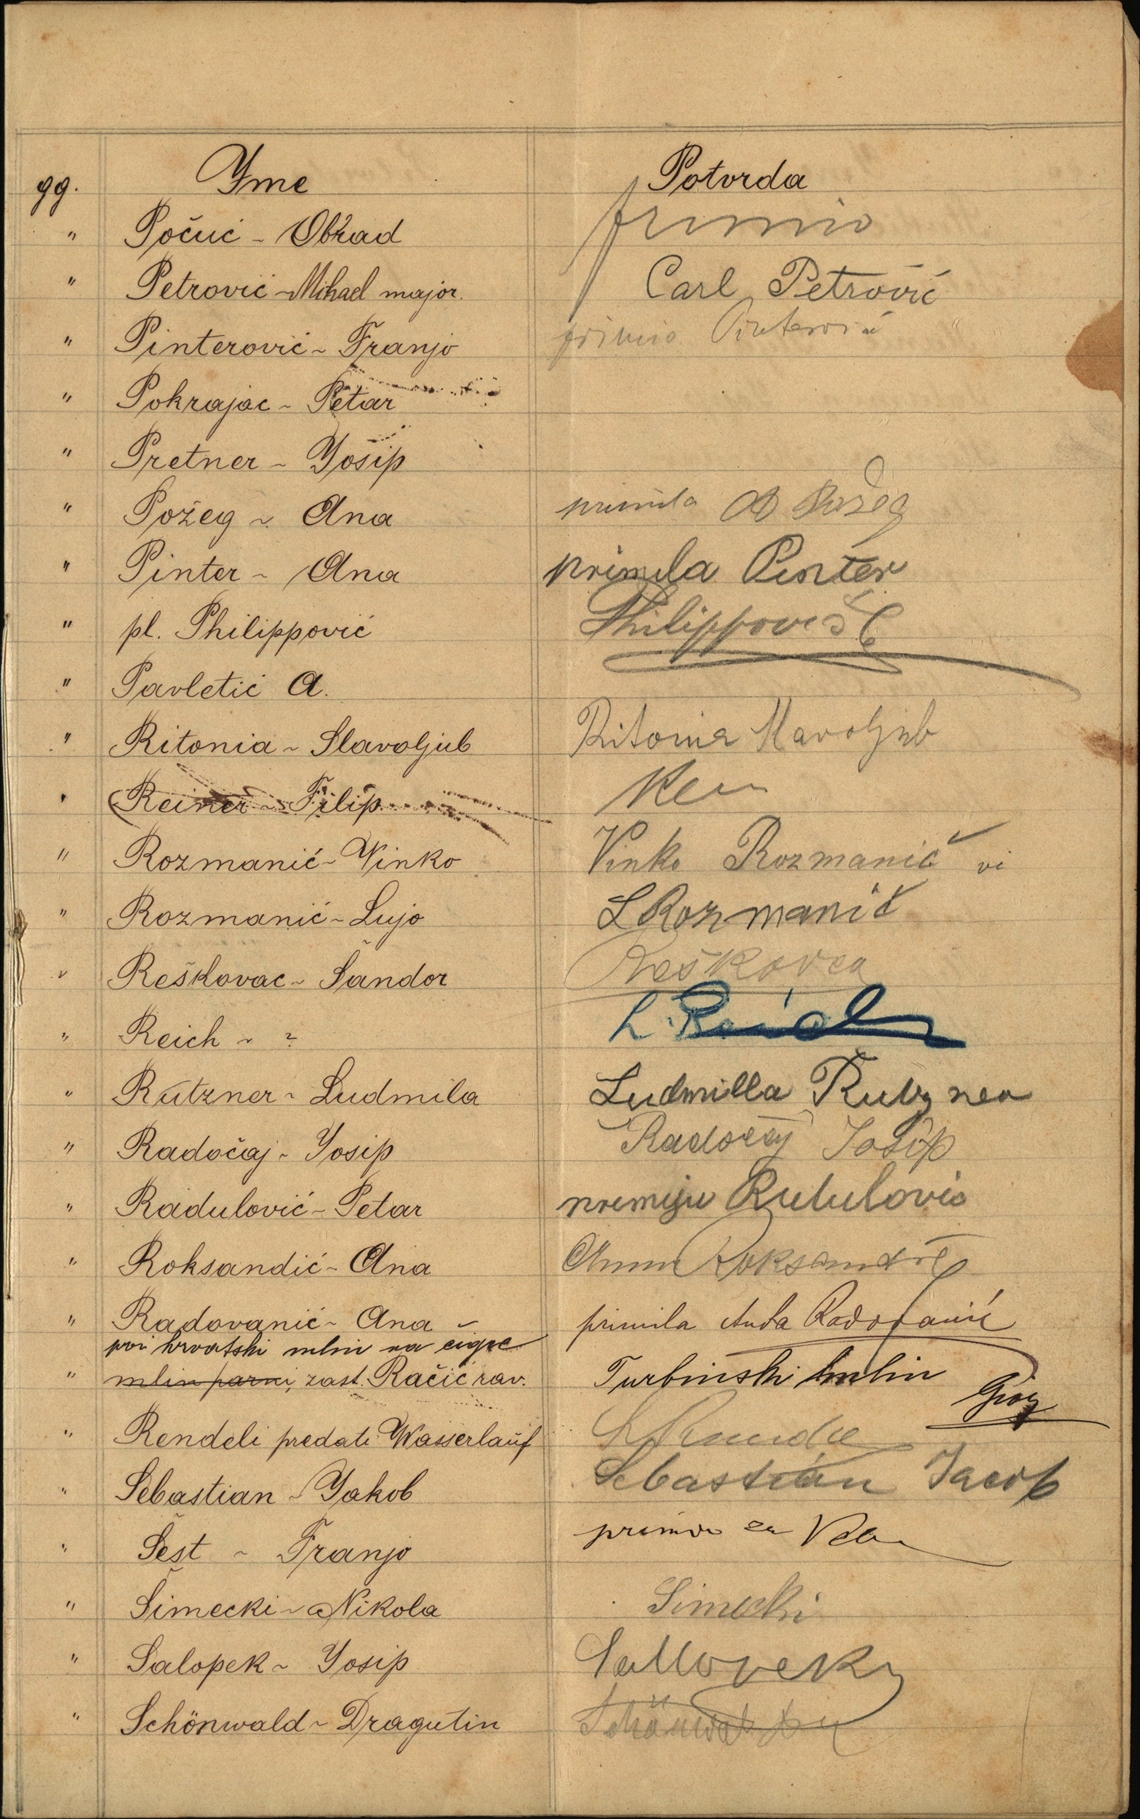 gg. Yme Potvrda
" Počuć - Obrad primio
" Petrović - Mihael major. Carl Petrović
" Pinterović - Franjo primio Pinterović
" Pokrajac - Petar
" Pretner - Yosip
" Požeg - Ana primila A Požeg
" Pinter - Ana primila Pinter
" pl. Philippović Philippović
" Pavletić A.
" Ritonia - Slavoljub Ritonia Slavoljub
" Reiner - Filip
" Rozmanić - Vinko Vinko Rozmanić
" Rozmanić - Lujo L Rozmanić
" Reškovac - Šandor Reškovca
" Reich - ? L. Reich
" Rutzner - Ludmila Ludmilla Rutzner
" Radočaj - Yosip Radočaj Josip
" Radulović - Petar
" Roksandić - Ana Roksandić
" Radovanić - Ana primila Anda Radovanić
pri hrvatski mlin na cigne
" mlin parni, zast. Račić rav. Turbinski mlin
" Rendeli predati Wasserlauf
" Sebastian - Yakob Sebastian Jacob
" Šest - Franjo primio za
" Šimecki - Nikola Simecki
" Salopek - Yosip
" Schönwald - Dragutin Schönwald